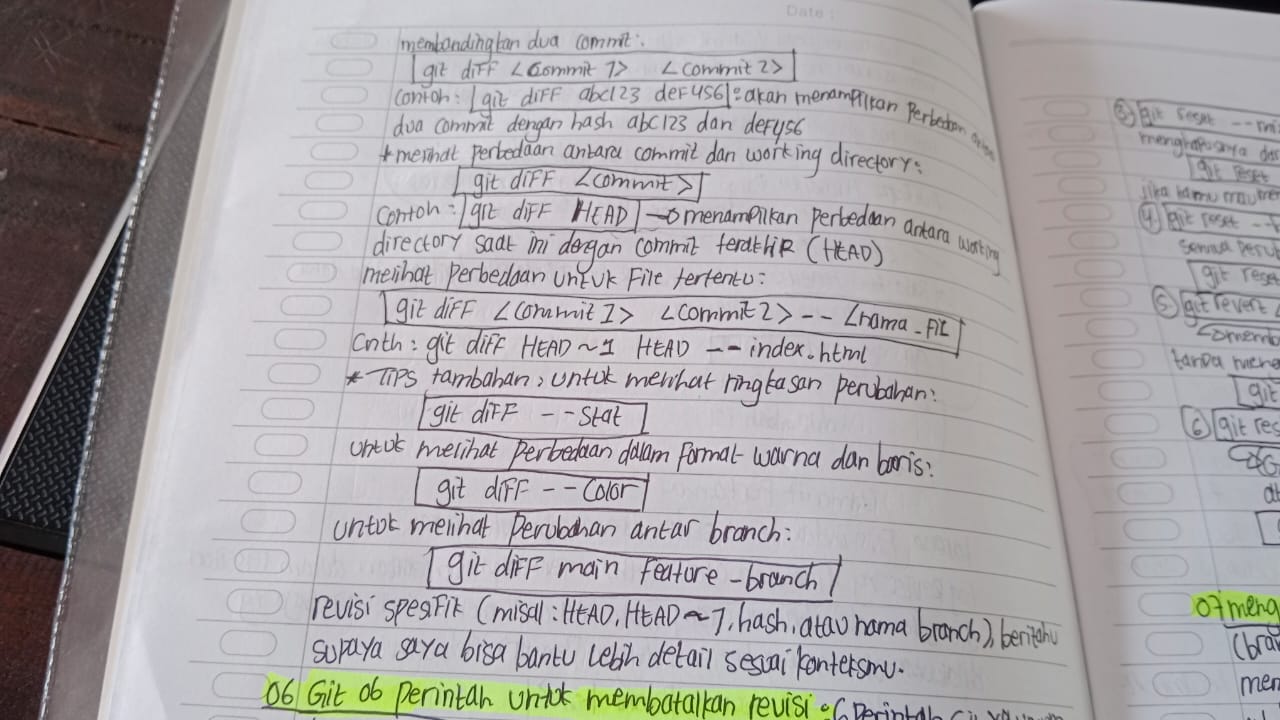 Date :
membandingkan dua commit:
git diff <Commit 1> <Commit 2>
Contoh : git diff abc123 def456 : akan menampilkan Perbedaan antara
dua commit dengan hash abc123 dan def456
* melihat perbedaan antara commit dan working directory:
git diff <commit>
Contoh : git diff HEAD → menampilkan perbedaan antara working
directory saat ini dengan commit terakhir (HEAD)
melihat perbedaan untuk File tertentu:
git diff <Commit 1> <Commit 2> -- <nama_file
Cnth : git diff HEAD~1 HEAD -- index.html
* TIPS tambahan, untuk melihat ringkasan perubahan:
git diff --stat
untuk melihat Perbedaan dalam Format warna dan baris:
git diff --Color
untuk melihat Perubahan antar branch:
git diff main feature-branch
revisi spesifik (misal : HEAD, HEAD~1, hash, atau nama branch), beritahu
supaya saya bisa bantu lebih detail sesuai konteksmu.
06 Git 06 perintah untuk membatalkan revisi : (Perintah
3) git reset --mi
menghapusnya dar
git reset
jika kamu mau me
4) git reset --
semua perub
git reset
5) git revert
memb
tanpa meng
git
6) git res
07 meng
(bra
men